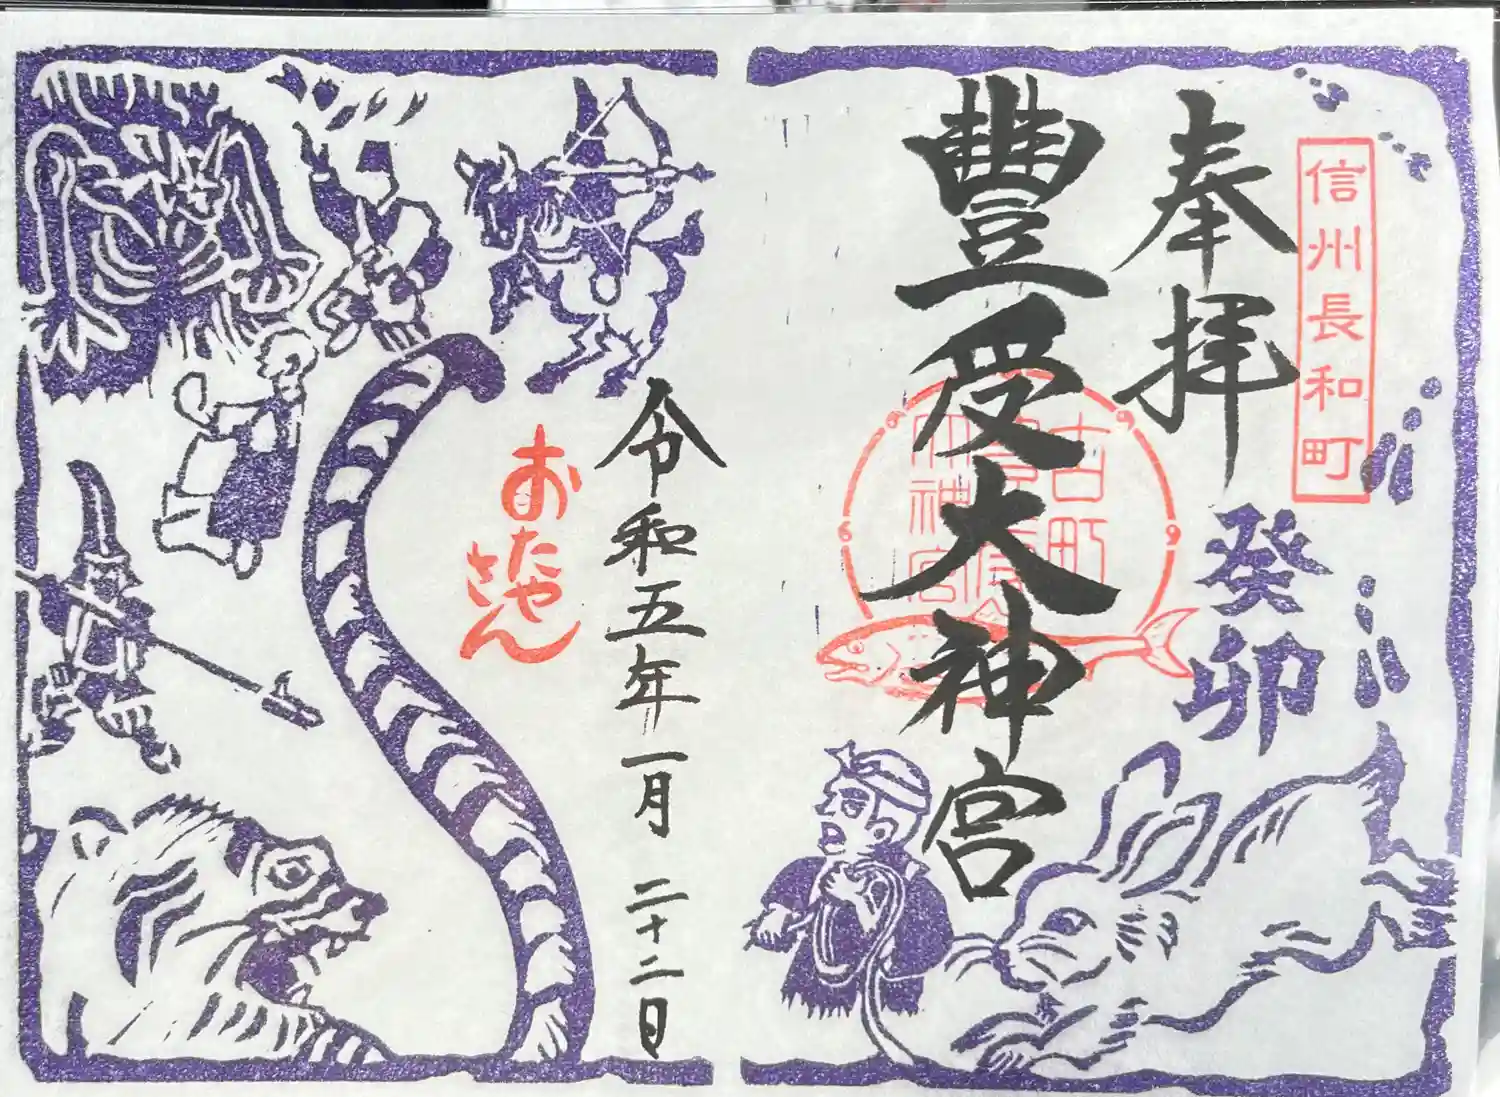 信州長和町
奉拝
癸卯
豊受大神宮
古町
神宮
6
9
令和五年一月二十二日
おたや
さん